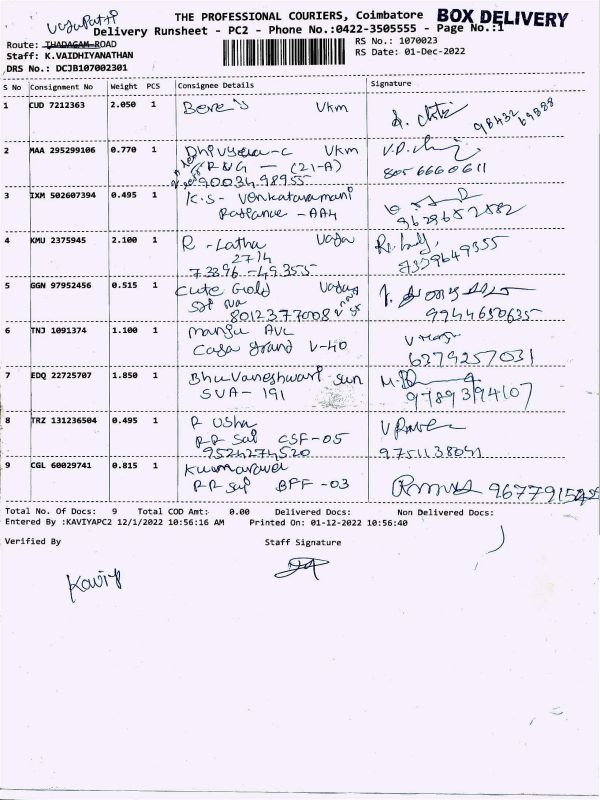 THE PROFESSIONAL COURIERS, Coimbatore BOX DELIVERY
Delivery Runsheet - PC2 - Phone No.:0422-3505555 - Page No.:1
Route: THADAGAM ROAD
RS No.: 1070023
Staff: K.VAIDHIYANATHAN
RS Date: 01-Dec-2022
DRS No.: DCJB107002301
S No Consignment No Weight PCS Consignee Details Signature
1 CUD 7212363 2.050 1 Vkm
98432 69888
2 MAA 295299106 0.770 1 Dhivyaa-c Vkm
(21-A)
9003498955
8056660611
3 IXM 502607394 0.495 1 K.S- Venkataramani
-AA4
9629652882
4 KMU 2375945 2.100 1 R -Latha
2714
73396-49355
7339649355
5 GGN 97952456 0.515 1 Cute Gold
8012377008
9944650635
6 TNJ 1091374 1.100 1 Manju AVL
Casa grand V-40
6379257031
7 EDQ 22725707 1.850 1 Bhuvaneshwari sun
SVA- 191
9789394107
8 TRZ 131236504 0.495 1 R Usha
RR Sai CSF-05
9524274520
9751138041
9 CGL 60029741 0.815 1 Kumaravel
RR Sai BFF -03
Total No. Of Docs: 9 Total COD Amt: 0.00 Delivered Docs: Non Delivered Docs:
Entered By :KAVIYAPC2 12/1/2022 10:56:16 AM Printed On: 01-12-2022 10:56:40
Verified By Staff Signature
Kaviya